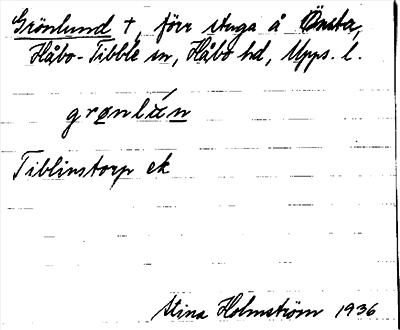 Grönlund †, förr stuga å Önsta,
Håbo-Tibble sn, Håbo hd, Upps. l.
grønlán
Tiblinstorp ek
Stina Holmström 1936